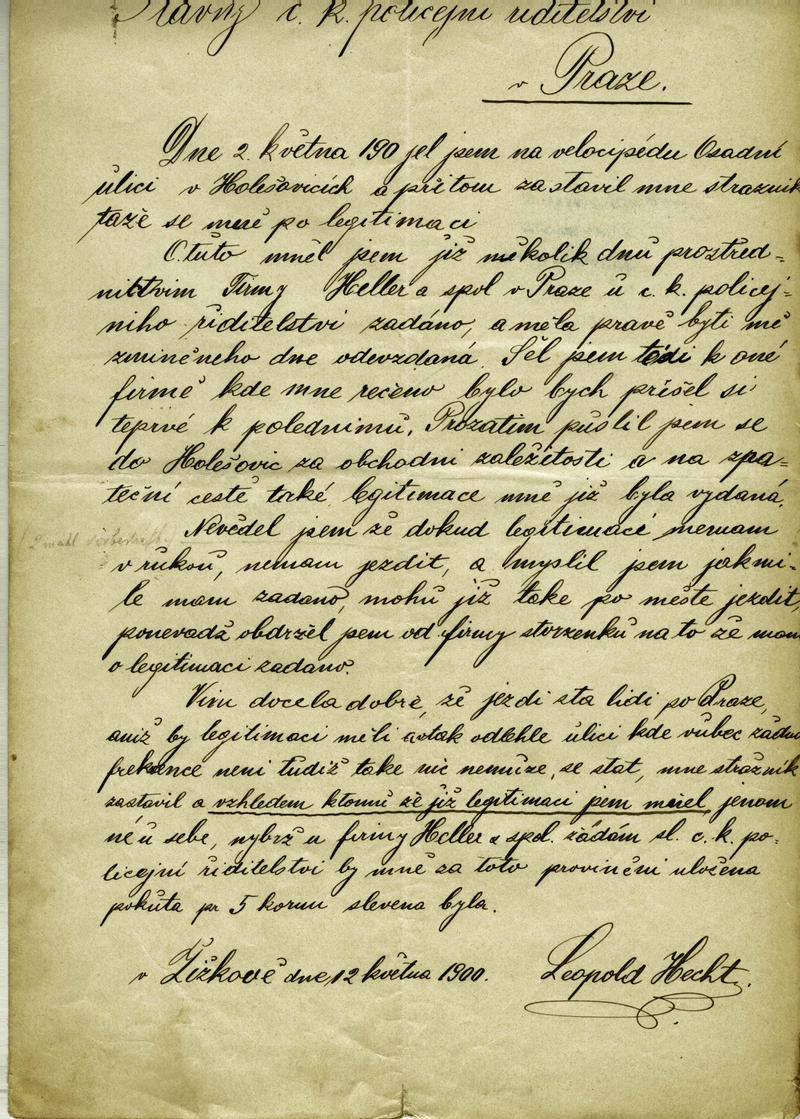 Slavný c. k. policejni riditelství
v Praze.
Dne 2. května 190 jel jsem na velocipédu Osadní
ulici v Holešovicích a přitom zastavil mne stražnik
tažě se mně po legitimaci
Otuto mněl jsem již někólik dnů prostřed-
nittvim Firmy Heller a spol v Praze u c. k. policej-
niho řiditelství zadáno, a měla pravě byti mě
zminěneho dne odevzdaná. Šel jsem tedi k oné
firmě kde mne rečeno bylo bych přišel si
teprvé k polednimu. Prozatim pustil jsem se
do Holešovic za obchodni zaležitosti a na zpa-
teční cestě také legitimace mně již byla vydaná.
Nevěděl jsem že dokud legitimaci nemam
v rukou, nemam jezdit, a myslil jsem jakmi-
le mam zadano, mohu již take po měste jezdit,
ponevadž obdržel jsem od firmy stvrzenku na to že mam
o legitimaci zadano.
Vim docela dobrě, žě jezdi sta lidi po Praze,
aniž by legitimaci měli a v tak odlehle ulici kde vubec žádna
frekvence neni tudiž take nic nemuže, se stat, mne stražnik
zastavil a vzhledem ktomu že již legitimaci jsem měel jenom
ně u sebe, nybrž u firmy Heller a spol. žádám sl. c. k. po-
licejní řiditelstvi by mně za toto proviněni uložena
pokuta pr 5 korun slevena byla.
v Žižkově dne 12 května 1900. Leopold Hecht